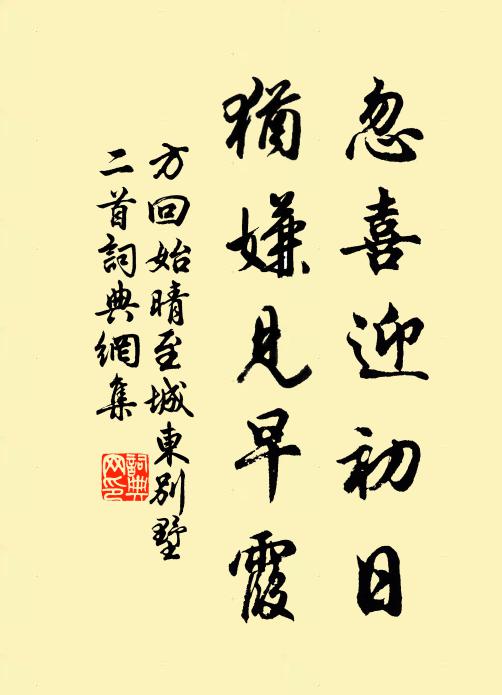 忽喜迎初日
猶嫌見早霞
方回始晴至城東別墅
二首詞典網集
詞典
网印